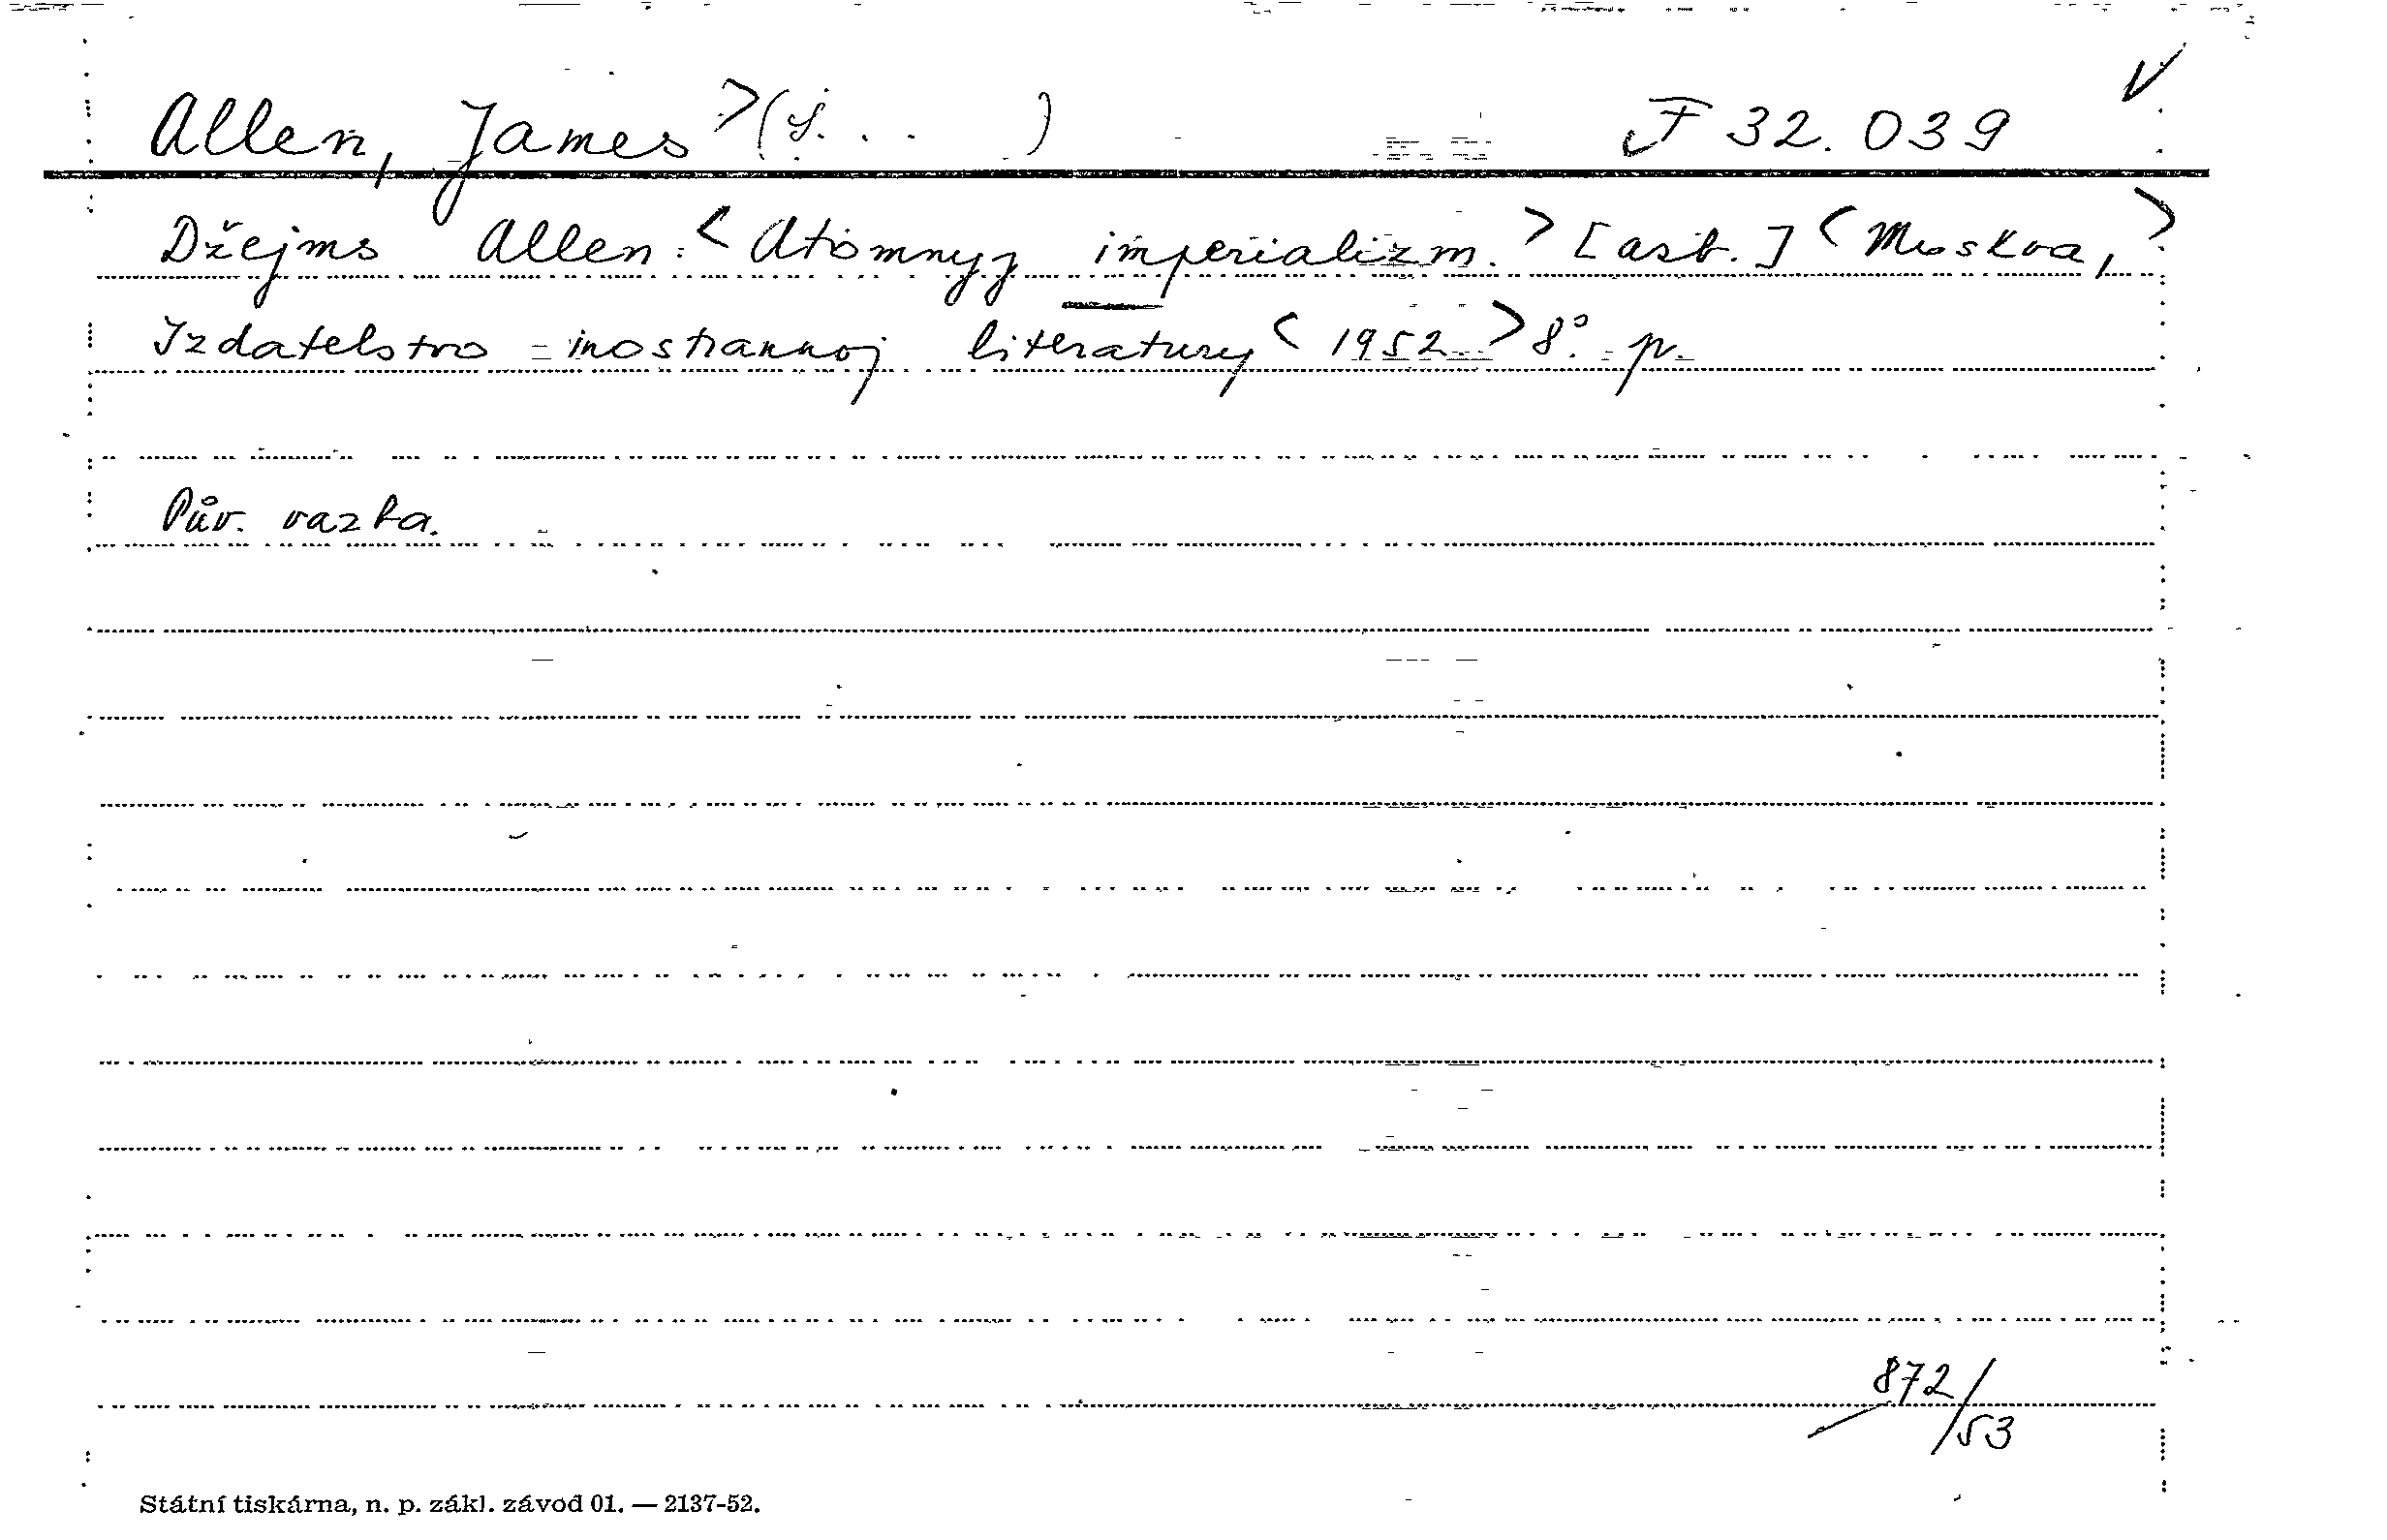 Allen, James > (S. . . ) F 32.039
Džejms Allen: < Atomnyj imperializm. > [azb.] < Moskva, >
Izdatelstvo inostrannoj literatury < 1952 > 8°. p.
Pův. vazba.
872/53
Státní tiskárna, n. p. zákl. závod 01. — 2137-52.